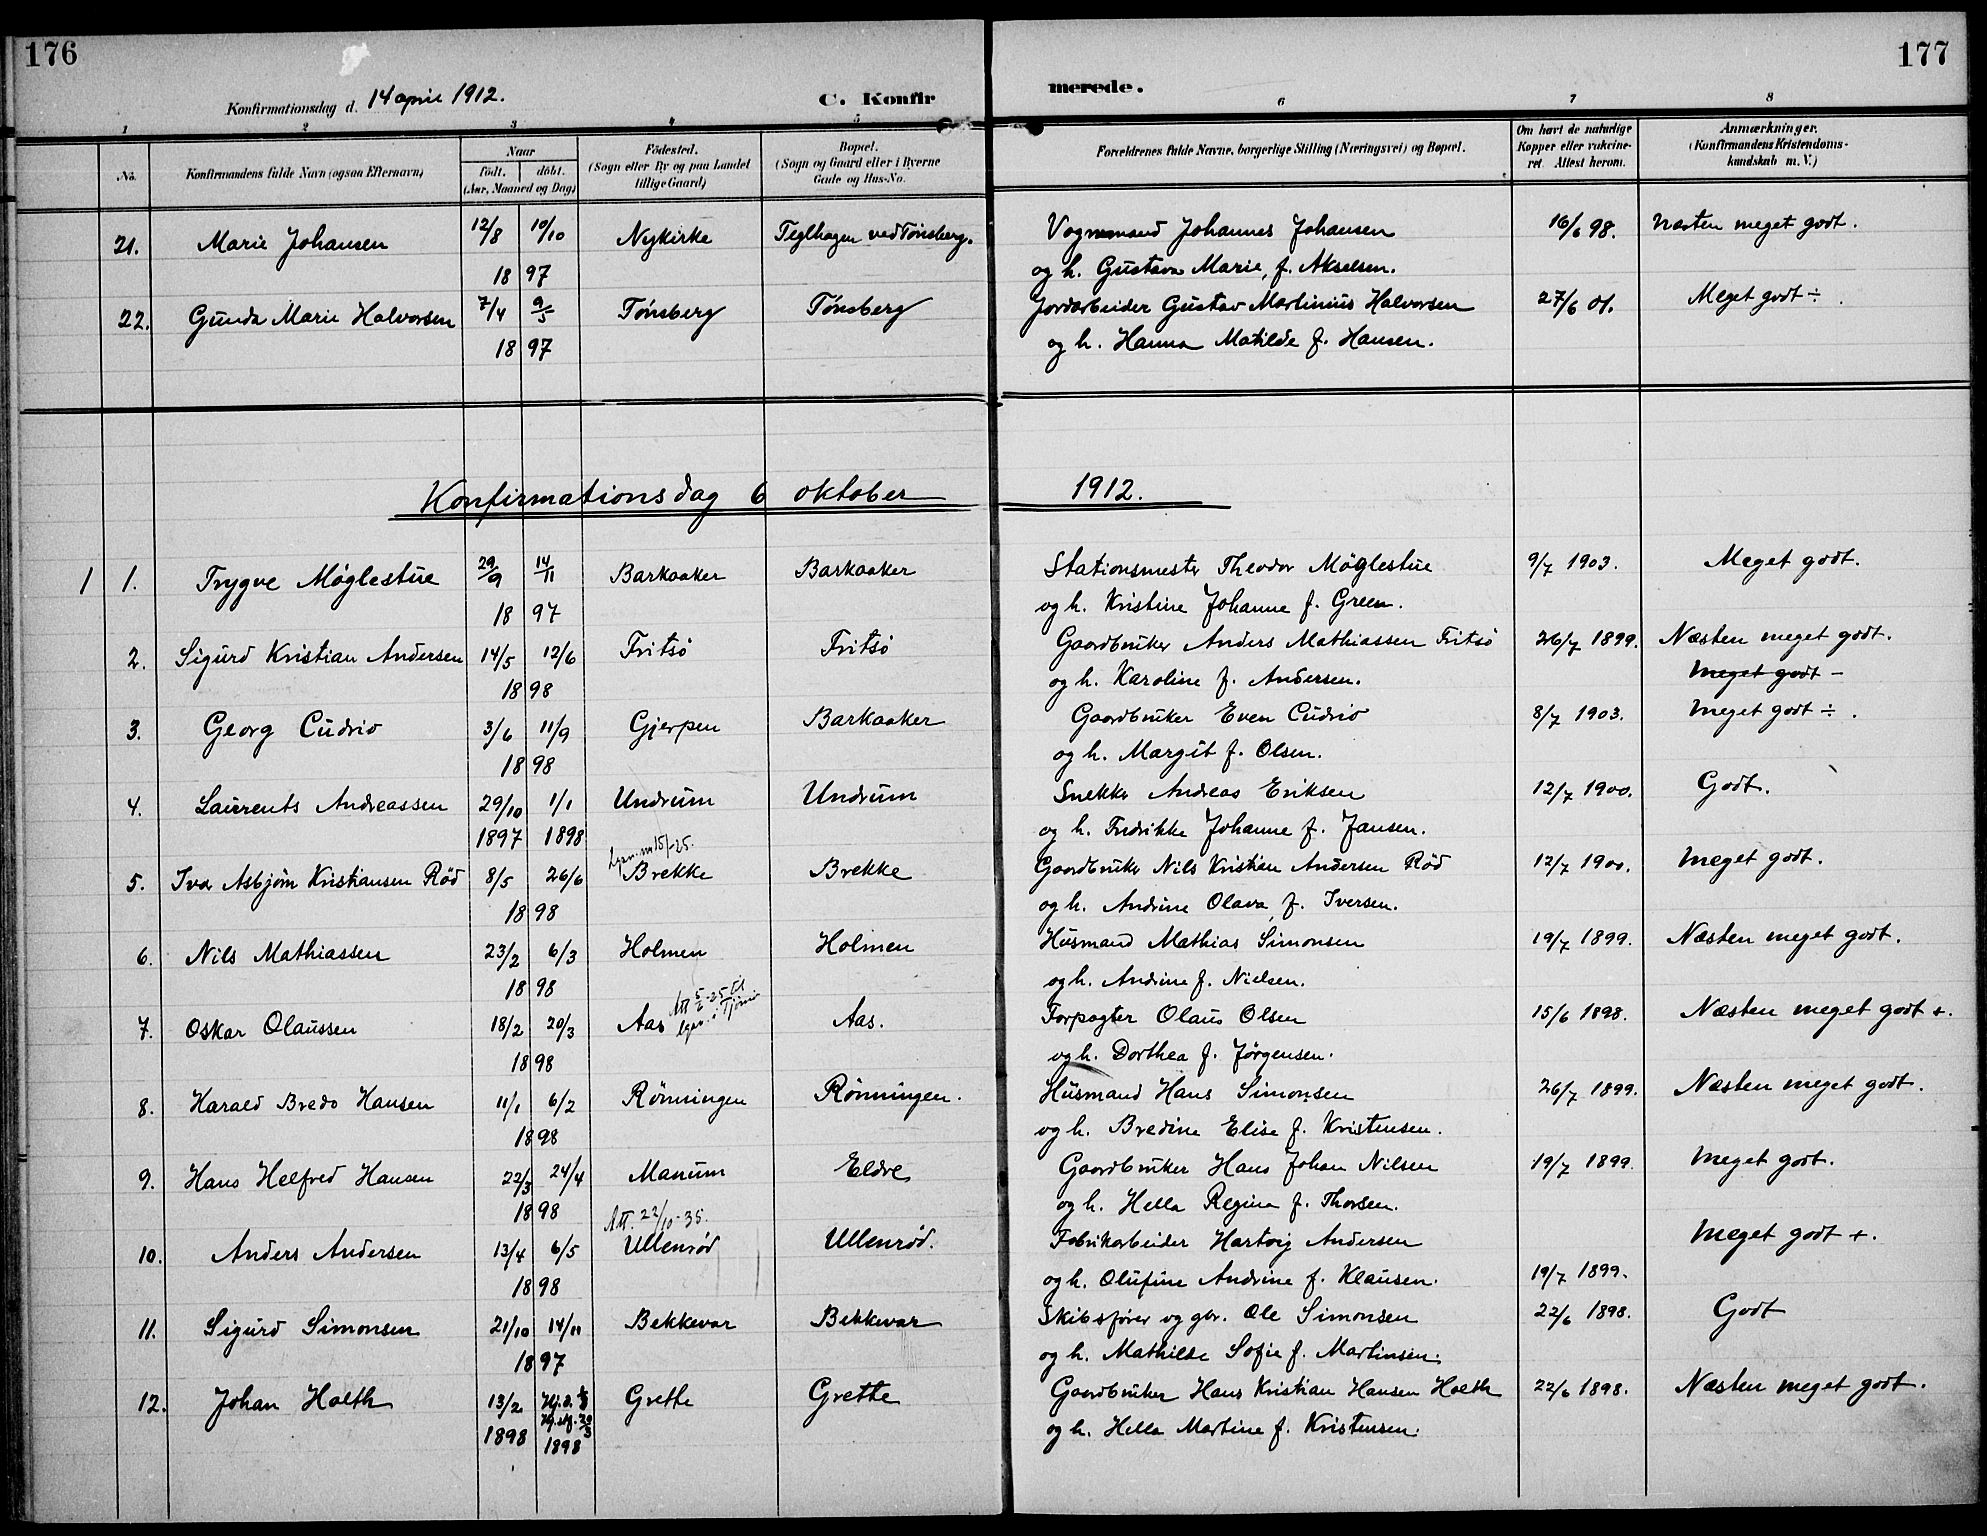 176
177
Konfirmationsdag d. 14 april 1912.
C. Konfir
merede.
1 2 3 4 5 6 7 8
No.
Konfirmandens fulde Navn (ogsaa Efternavn)
Naar
födt. döbt.
(Aar, Maaned og Dag)
Födested.
(Sogn eller By og paa Landet
tillige Gaard)
Bopæl.
(Sogn og Gaard eller i Byerne
Gade og Hus-No.
Forældrenes fulde Navne, borgerlige Stilling (Næringsvei) og Bopæl.
Om havt de naturlige
Kopper eller vakcine-
ret. Attest herom.
Anmærkninger.
(Konfirmandens Kristendoms-
kundskab m. V.)
21. Marie Johansen 12/8 10/10 Nykirke Teglhagen ved Tønsberg. Vognmand Johannes Johansen 16/6 98. Næsten meget godt.
1897 og h. Gustava Marie, f. Akselsen.
22. Gunda Marie Halvorsen 7/4 9/5 Tønsberg Tønsberg Jordarbeider Gustav Martinius Halvorsen 27/6 01. Meget godt ÷.
1897 og h. Hanna Matilde f. Hansen.
Konfirmationsdag 6 oktober 1912.
1 1. Trygve Møglestue 29/9 14/11 Barkaaker Barkaaker Stationsmester Theodor Møglestue 9/7 1903. Meget godt.
1897 og h. Kristine Johanne f. Green.
2. Sigurd Kristian Andersen 14/5 12/6 Fritsø Fritsø Gaardbruker Anders Mathiassen Fritsø 26/7 1899. Næsten meget godt.
1898 og h. Karoline f. Andersen. Meget godt –
3. Georg Cudrio 3/6 11/9 Gjerpen Barkaaker Gaardbruker Even Cudrio 8/7 1903. Meget godt ÷.
1898 og h. Margit f. Olsen.
4. Laurents Andreassen 29/10 1/1 Undrum Undrum Snekker Andreas Eriksen 12/7 1900. Godt.
1897 1898 og h. Fredrikke Johanne f. Jansen.
5. Ivar Asbjørn Kristiansen Rød 8/5 26/6 Brekke Brekke Gaardbruker Nils Kristian Andersen Rød 12/7 1900. Meget godt.
1898 og h. Andrine Olava, f. Iversen.
6. Nils Mathiassen 23/2 6/3 Holmen Holmen Husmand Mathias Simonsen 19/7 1899. Næsten meget godt.
1898 og h. Andrine f. Nielsen.
Att. 5/2-25 til
7. Oskar Olaussen 18/2 20/3 Aas Aas. Forpagter Olaus Olsen 15/6 1898. Næsten meget godt +.
1898 og h. Dorthea f. Jørgensen.
8. Harald Bredo Hansen 11/1 6/2 Rønningen Rønningen. Husmand Hans Simonsen 26/7 1899. Næsten meget godt.
1898 og h. Bredine Elise f. Kristensen.
9. Hans Helfred Hansen 22/3 24/4 Manum Eldre Gaardbruker Hans Johan Nilsen 19/7 1899. Meget godt.
1898 og h. Hella Regine f. Thorsen.
Att. 22/10-35.
10. Anders Andersen 13/4 6/5 Ullenrød Ullenrød. Fabrikarbeider Hartvig Andersen Meget godt +.
1898 og h. Olufine Andrine f. Klausen. 19/7 1899.
11. Sigurd Simonsen 21/10 14/11 Bekkevar Bekkevar Skibsfører og gbr. Ole Simonsen 22/6 1898. Godt
1897 og h. Mathilde Sofie f. Martinsen.
12. Johan Holth 13/2 Grette Grette Gaardbruker Hans Kristian Hansen Holth 22/6 1898. Næsten meget godt.
1898 1898 og h. Hella Martine f. Kristensen.